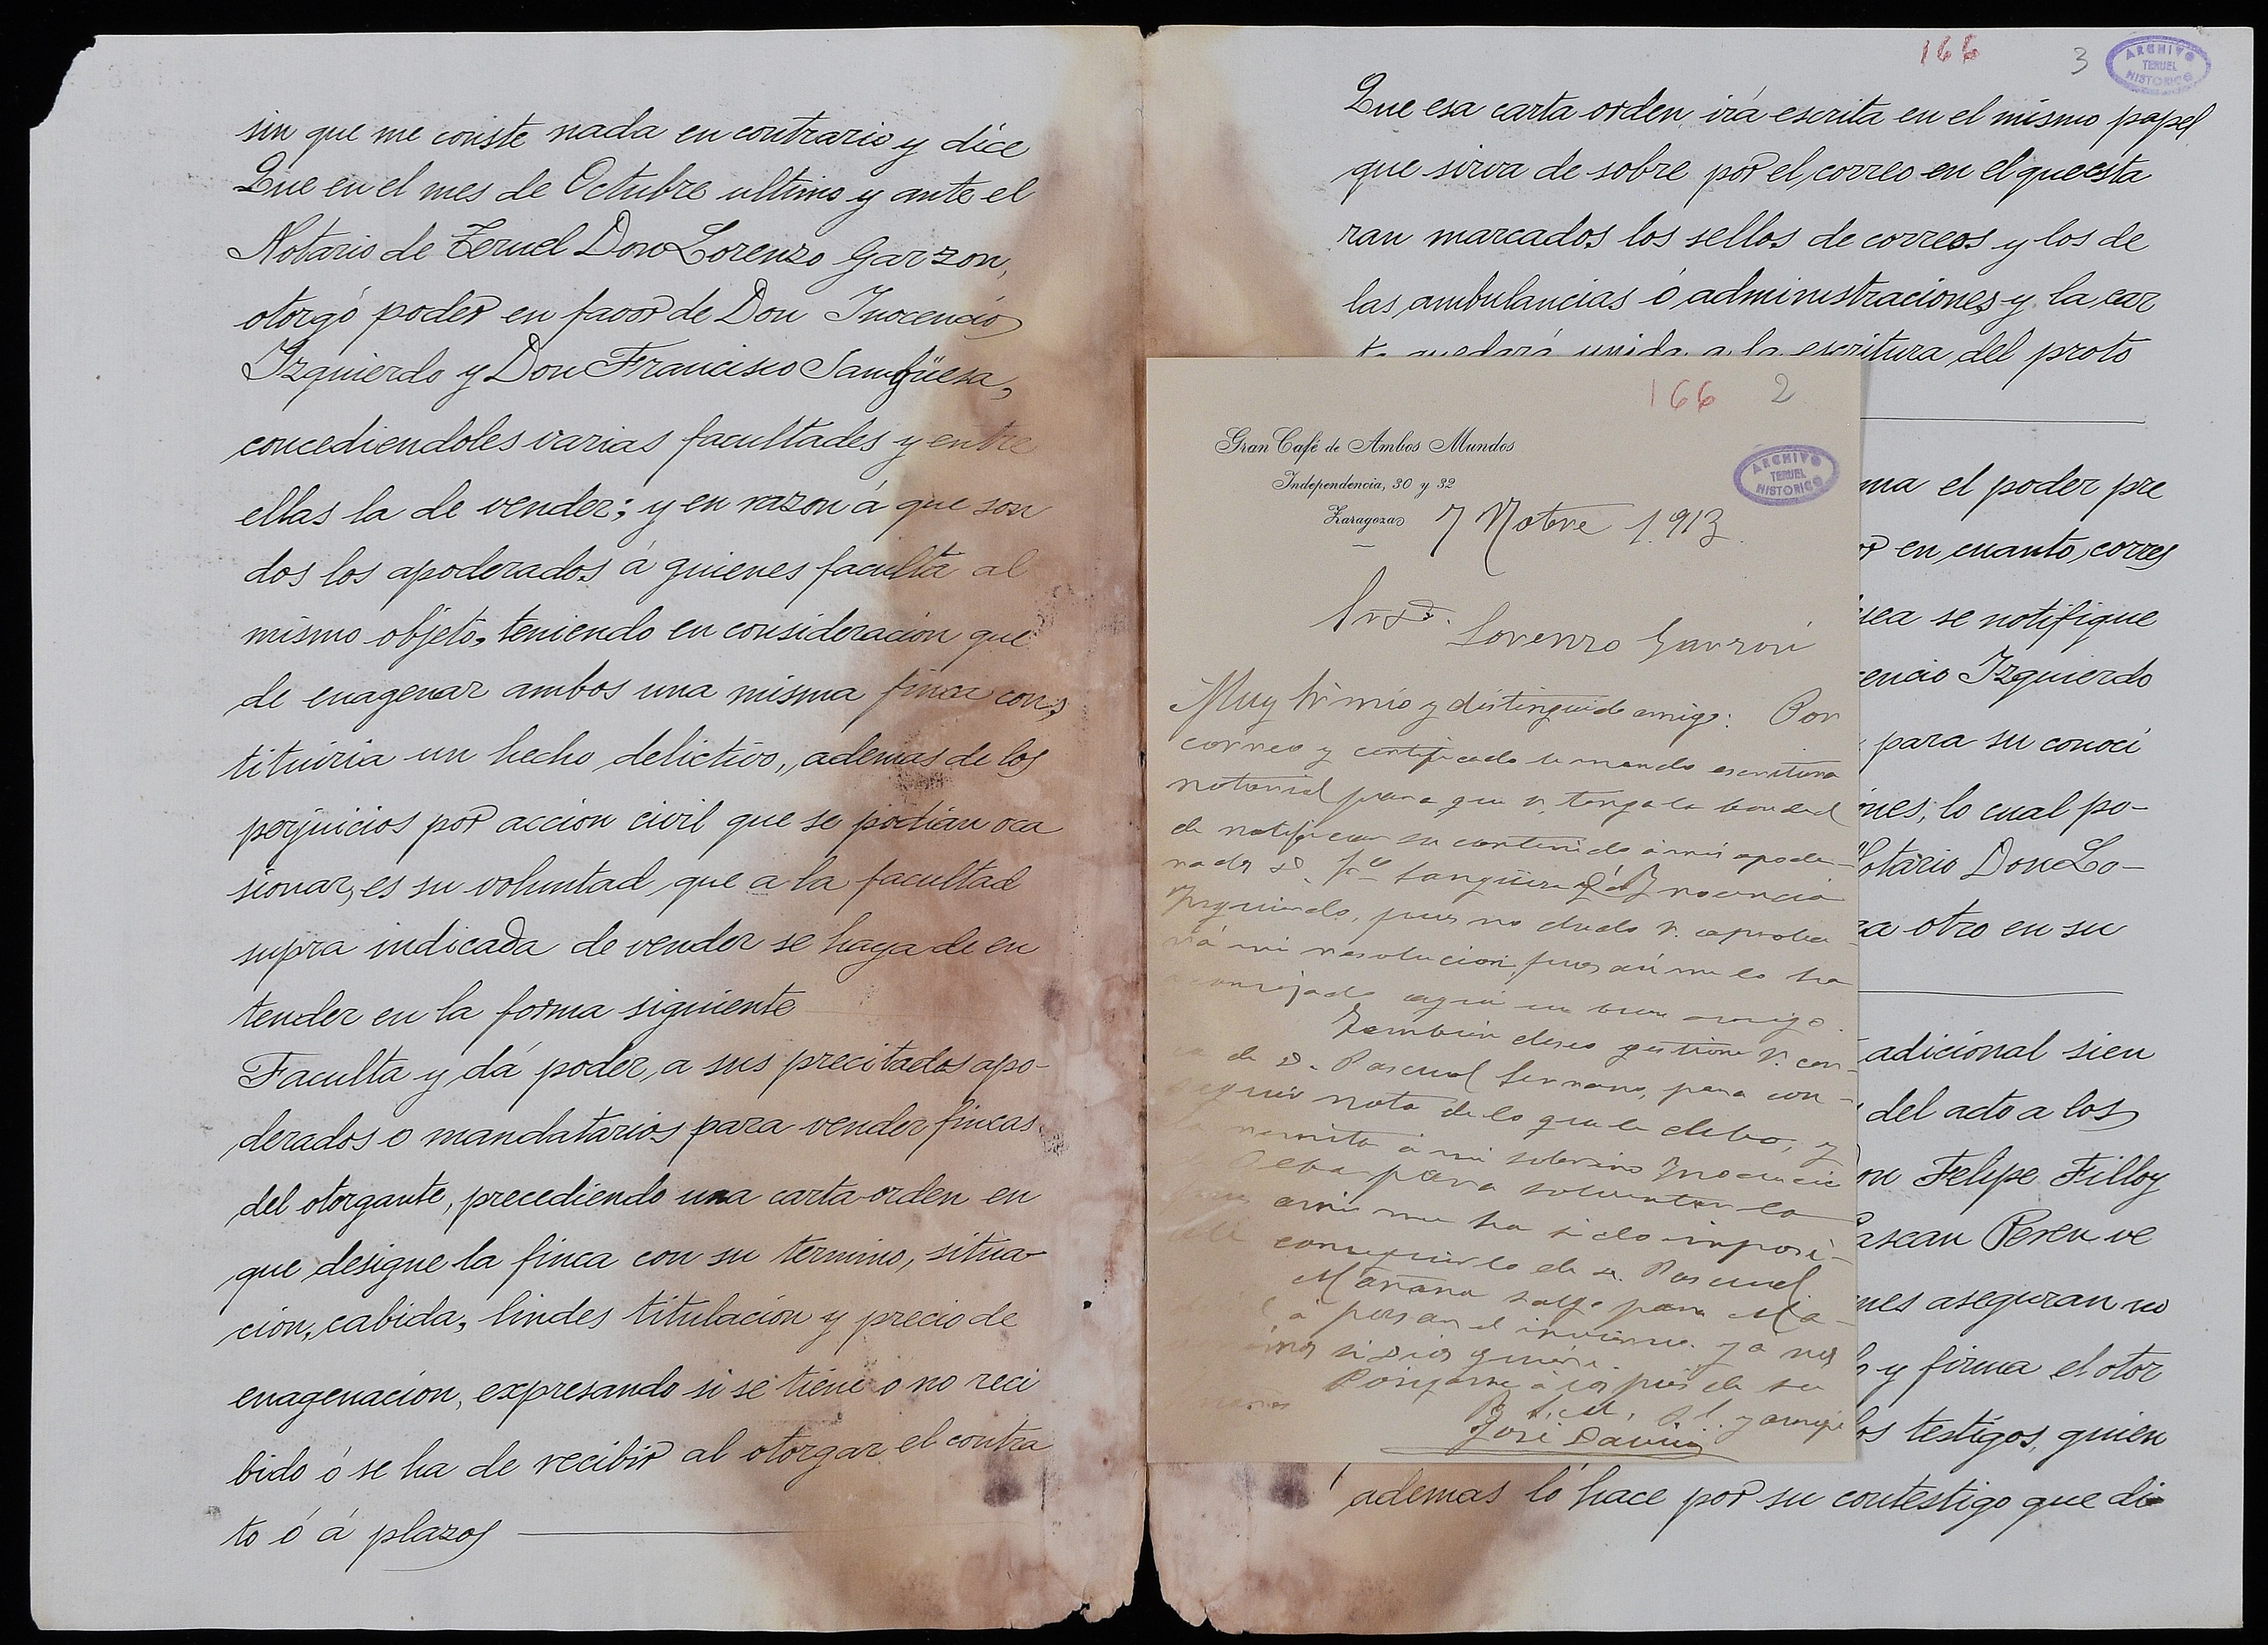 sin que me conste nada en contrario y dice
Que en el mes de Octubre ultimo y ante el
Notario de Teruel Don Lorenzo Garzon,
otorgó poder en favor de Don Inocencio
Izquierdo y Don Francisco Sangüesa,
concediendoles varias facultades y entre
ellas la de vender; y en razon á que son
dos los apoderados á quienes faculta al
mismo objeto, teniendo en consideracion que
de enagenar ambos una misma finca cons
tituiria un hecho delictivo, ademas de los
perjuicios por accion civil que se podian oca
sionar, es su voluntad que a la facultad
supra indicada de vender se haya de en
tender en la forma siguiente
Faculta y dá poder, a sus precitados apo-
derados o mandatarios para vender fincas
del otorgante, precediendo una carta-orden en
que designe la finca con su termino, situa
cion, cabida, lindes titulacion y precio de
enagenacion, expresando si se tiene o no reci
bido ó se ha de recibir al otorgar el contra
to ó á plazos
166 3
ARCHIVO
TERUEL
HISTORICO
Que esa carta orden, irá escrita en el mismo papel
que sirva de sobre por el correo en el que esta
ran marcados los sellos de correos y los de
las ambulancias ó administraciones y la car
ta quedará unida a la escritura del proto
ma el poder pre
or en cuanto corres
se notifique
encio Izquierdo
para su conoci
ones, lo cual po-
Notario Don Lo-
otro en su
adicional sien
del acto a los
Felipe Filloy
nes aseguran no
y firma el otor
os testigos, quien
ademas lo hace por su contestigo que di
166 2
Gran Café de Ambos Mundos
Independencia, 30 y 32
Zaragoza 7 Notbre 1913.
ARCHIVO
TERUEL
HISTORICO
Sr. D. Lorenzo Garzón
Muy Sr mio y distinguido amigo: Por
correo y certificado le mando escritura
notarial para que V. tenga la bondad
de notificar su contenido á mis apode-
rados D. Fco Sangüesa y D. Inocencio
Izquierdo, pues no dudo V. aproba-
rá mi resolucion, pues asi me lo ha
aconsejado aqui un buen amigo.
Tambien deseo gestione V. cer-
ca de D. Pascual Serrano, para con-
seguir nota de lo que le debo, y
la remita á mi sobrino Inocencio
para solventarlo
á mi me ha sido imposi-
ble conseguirlo de D. Pascual
Mañana salgo para
á pasar el invierno. ya nos
si Dios quiere.
Póngame á los pies de su
S. S. y amigo
José